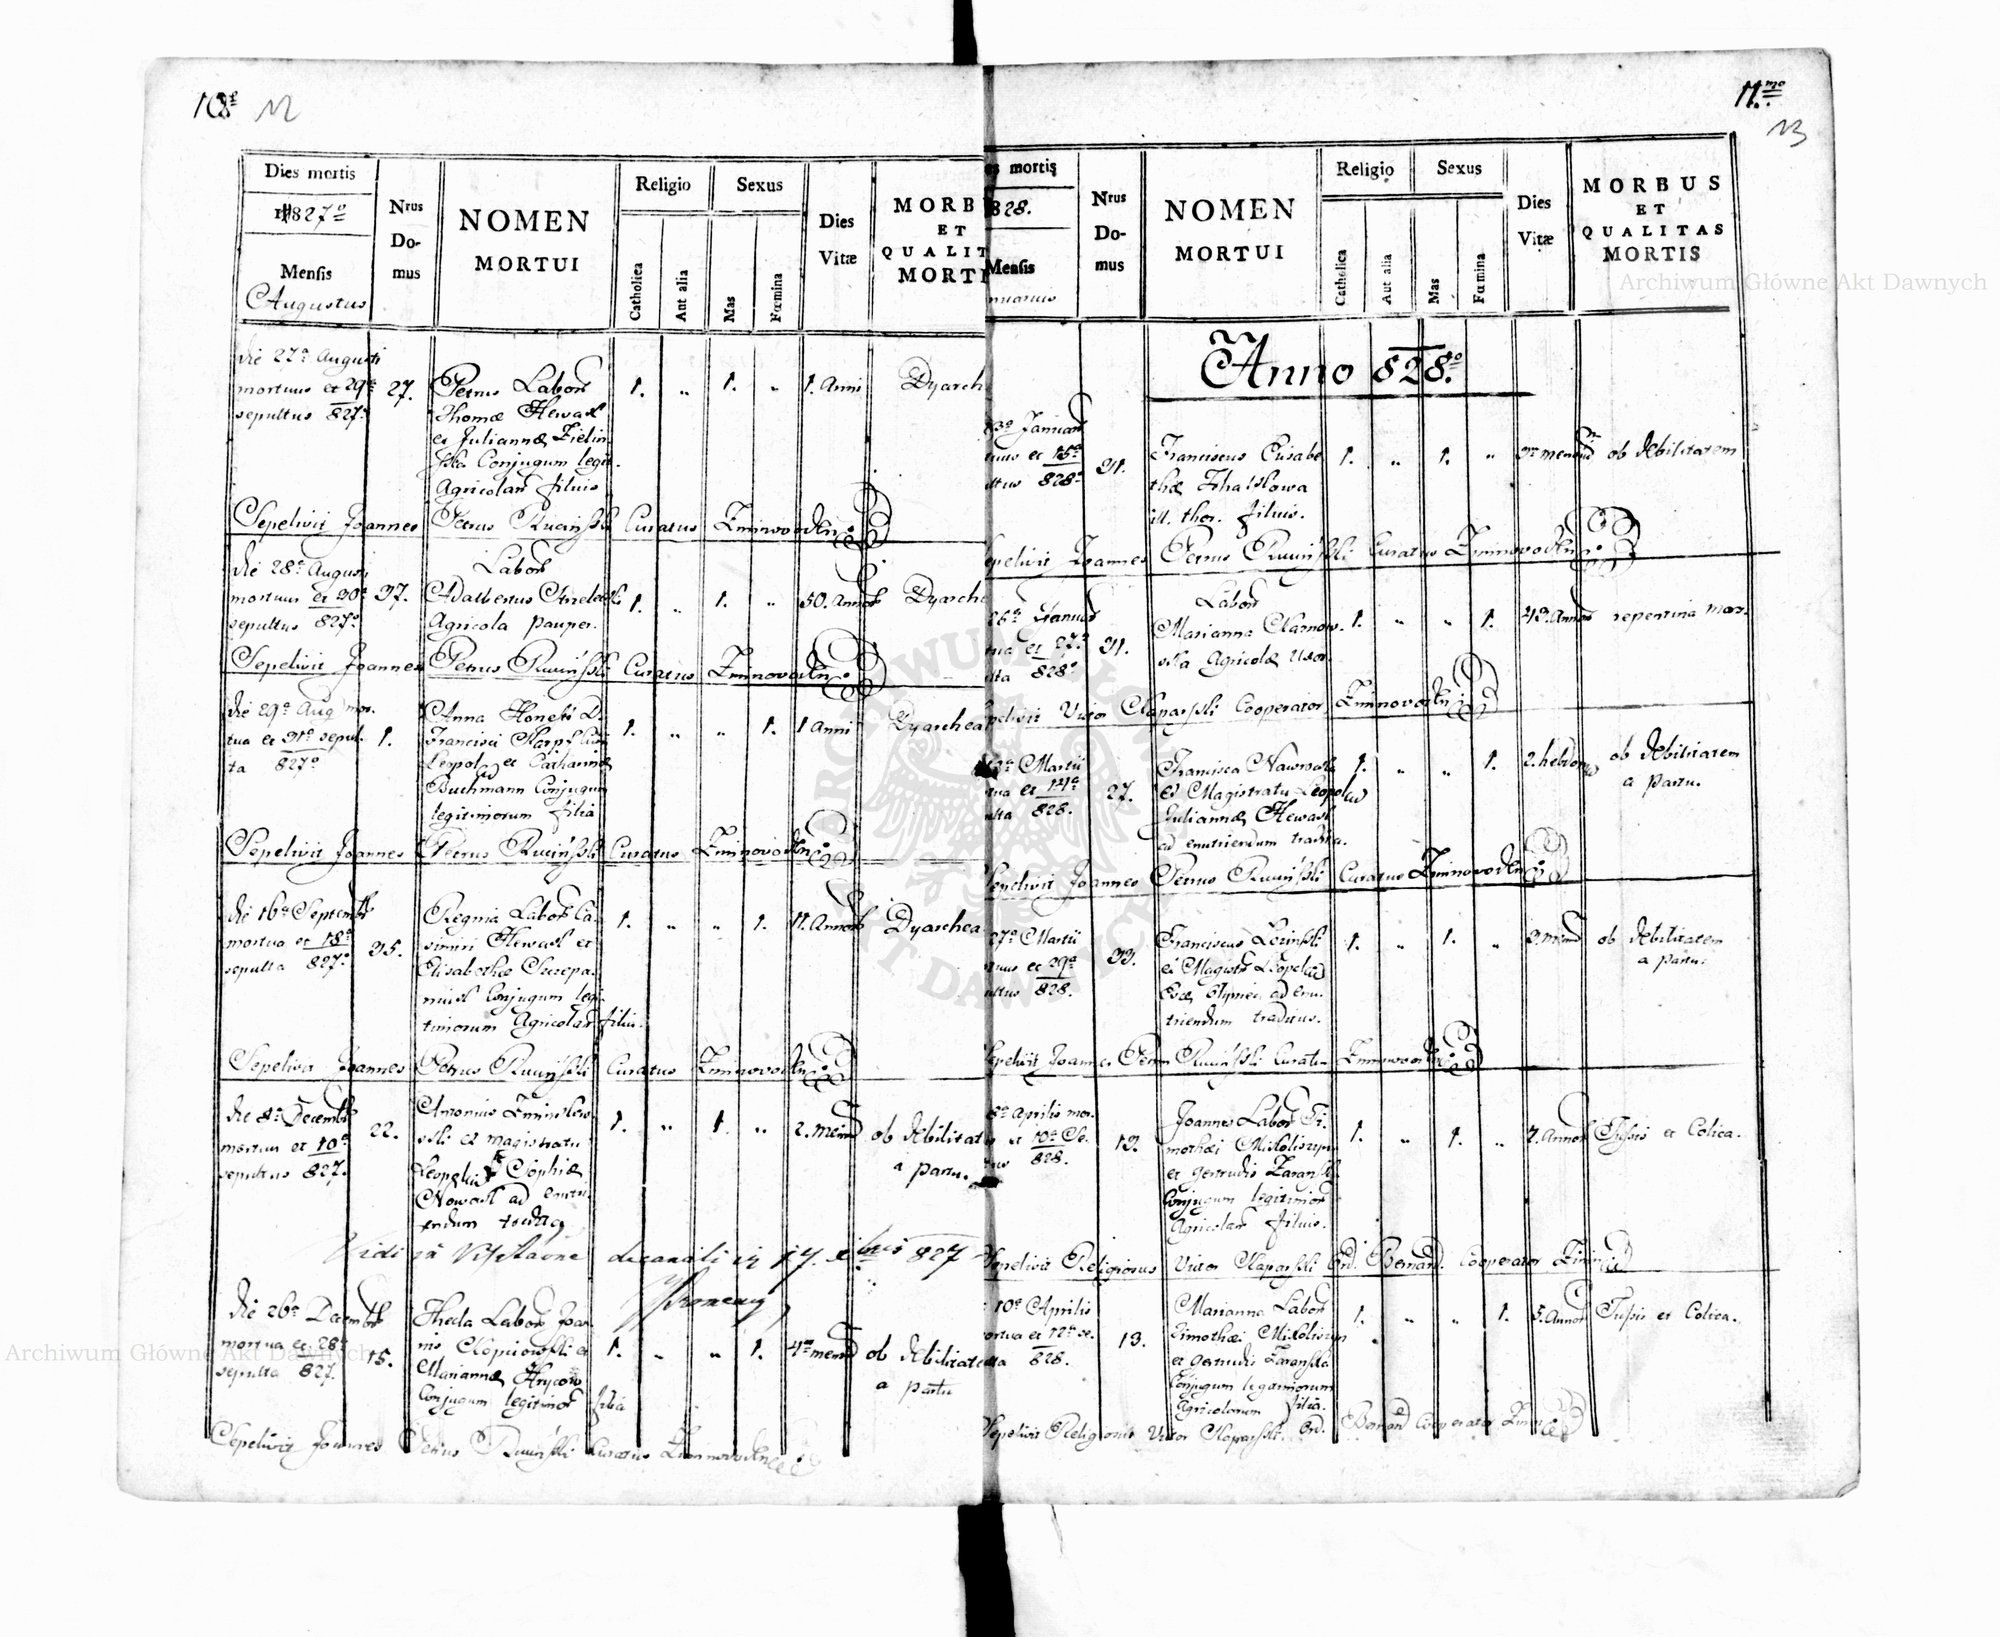 10
12
Dies mortis
1827º
Mensis
Augustus
Nrus
Do-
mus
NOMEN
MORTUI
Religio
Catholica
Aut alia
Sexus
Mas
Fœmina
Dies
Vitæ
MORB
ET
QUALIT
MORTI
die 27ª Augusti
mortuus et 29ª
sepultus 827º
27.
Petrus Labor
Thomæ Hewak
et Juliannæ Zielin
ska Conjugum legit.
Agricolar filius
1.
"
1.
"
1. Anni
Dyarch
Sepelivit Joannes Petrus Ruciński Curatus Zimnovoden
die 28ª Augusti
mortuus et 30ª
sepultus 827º
37.
Labor
Adalbertus
Agricola pauper.
1.
"
1.
"
50. Annor
Dyarche
Sepelivit Joannes Petrus Ruciński Curatus Zimnovoden
die 29ª Aug mor.
tua et 31ª sepul.
ta 827º
1.
Anna Honesti D.
Francisci
Leopol et Catharinæ
Buchmann Conjugum
legitimorum filia
1.
"
"
1.
1 Anni
Dyarchea
Sepelivit Joannes Petrus Ruciński Curatus Zimnovoden
die 16ª Septembr
mortua et 18ª
sepulta 827º
35.
Regina Labor Ca
simiri Hewak et
Elisabethæ Szczepa
niuk Conjugum legi
timorum Agricolar filia.
1.
"
"
1.
11. Annor
Dyarchea
Sepelivit Joannes Petrus Ruciński Curatus Zimnovoden
die 8ª Decembr
mortuus et 10ª
sepultus 827.
22.
Antonius
ski ex magistratu
Leopoli Sophiæ
Nowak ad enutri
endum
1.
"
1.
"
2. mens
ob debilitat
a partu.
Vidi in Visitatione decanali 17. 827
die 26ª Decembr
mortua et 28ª
sepulta 827.
15.
Thecla Labor Joan
nis et
Mariannæ Hryców
Conjugum legitimor filia
1.
"
"
1.
4 mens
ob debilitate
a partu
Sepelivit Joannes Petrus Ruciński Curatus Zimnovoden
11mo
13
es mortis
828.
Mensis
nuarius
Nrus
Do-
mus
NOMEN
MORTUI
Religio
Catholica
Aut alia
Sexus
Mas
Fœmina
Dies
Vitæ
MORBUS
ET
QUALITAS
MORTIS
Anno 828º
13ª Januar
tuus et 15ª
ultus 828º
31.
Franciscus Elisabe
thæ
ill. thor. filius.
1.
"
1.
"
3 mensiu
ob debilitatem
epelivit Joannes Petrus Ruciński Curatus Zimnovoden
26ª Januar
ua et 27ª
lta 828º
31.
Labor
Marianna Harnow
ska Agricolæ Uxor
1.
"
"
1.
43. Annor
repentina mors.
epelivit Victor Kaparski Cooperator Zimnovoden
13ª Martii
tua et 14ª
ulta 828.
27.
Francisca Nawrock
ex Magistratu Leopol
Juliannæ Hewak
ad enutriendum tradita.
1.
"
"
1.
2. hebdom
ob debilitatem
a partu.
Sepelivit Joannes Petrus Ruciński Curatus Zimnovoden
27ª Martii
tuus et 29ª
ultus 828.
33.
Franciscus Loziński
ex Magistr Leopol
Evæ Olyniec ad enu
triendum traditus.
1.
"
1.
"
3. mens
ob debilitatem
a partu.
Sepelivit Joannes Petrus Ruciński Curatus Zimnovoden
8ª Aprilis mor.
et 10ª Se.
828.
13.
Joannes Labor Ti
mothæi Mikoliszyn
et Gertrudis Zarańska
Conjugum legitimor
Agricolar filius.
1.
"
1.
"
7. Annor
Tussis et Colica.
Sepelivit Religiosus Victor Kaparski Ord. Bernard. Cooperator
10ª Aprilis
ortua et 12ª se.
lta 828.
13.
Marianna Labor
Timothæi Mikoliszyn
et Gertrudis Zarańska
Conjugum legitimorum
Agricolarum filia.
1.
"
"
1.
5. Annor
Tussis et Colica.
Sepelivit Religiosus Victor Kaparski Ord. Bernard Cooperator
Archiwum Główne Akt Dawnych
Archiwum Główne Akt Dawnych
ARCHIWUM GŁÓWNE AKT DAWNYCH